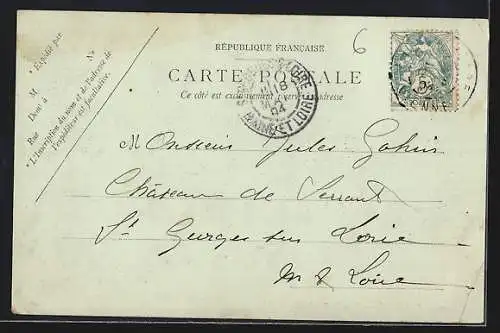 RÉPUBLIQUE FRANÇAISE
6
CARTE POSTALE
Ce côté est exclusivement réservé à l'adresse
* Expédié par
M
Demt à
Rue Nº
* L'inscription du nom et de l'adresse de
l'expéditeur est facultative.
LOIRE
18
04
MAINE-ET-LOIRE
Monsieur Jules
Château de Serrant
St Georges sur Loire
M & Loire